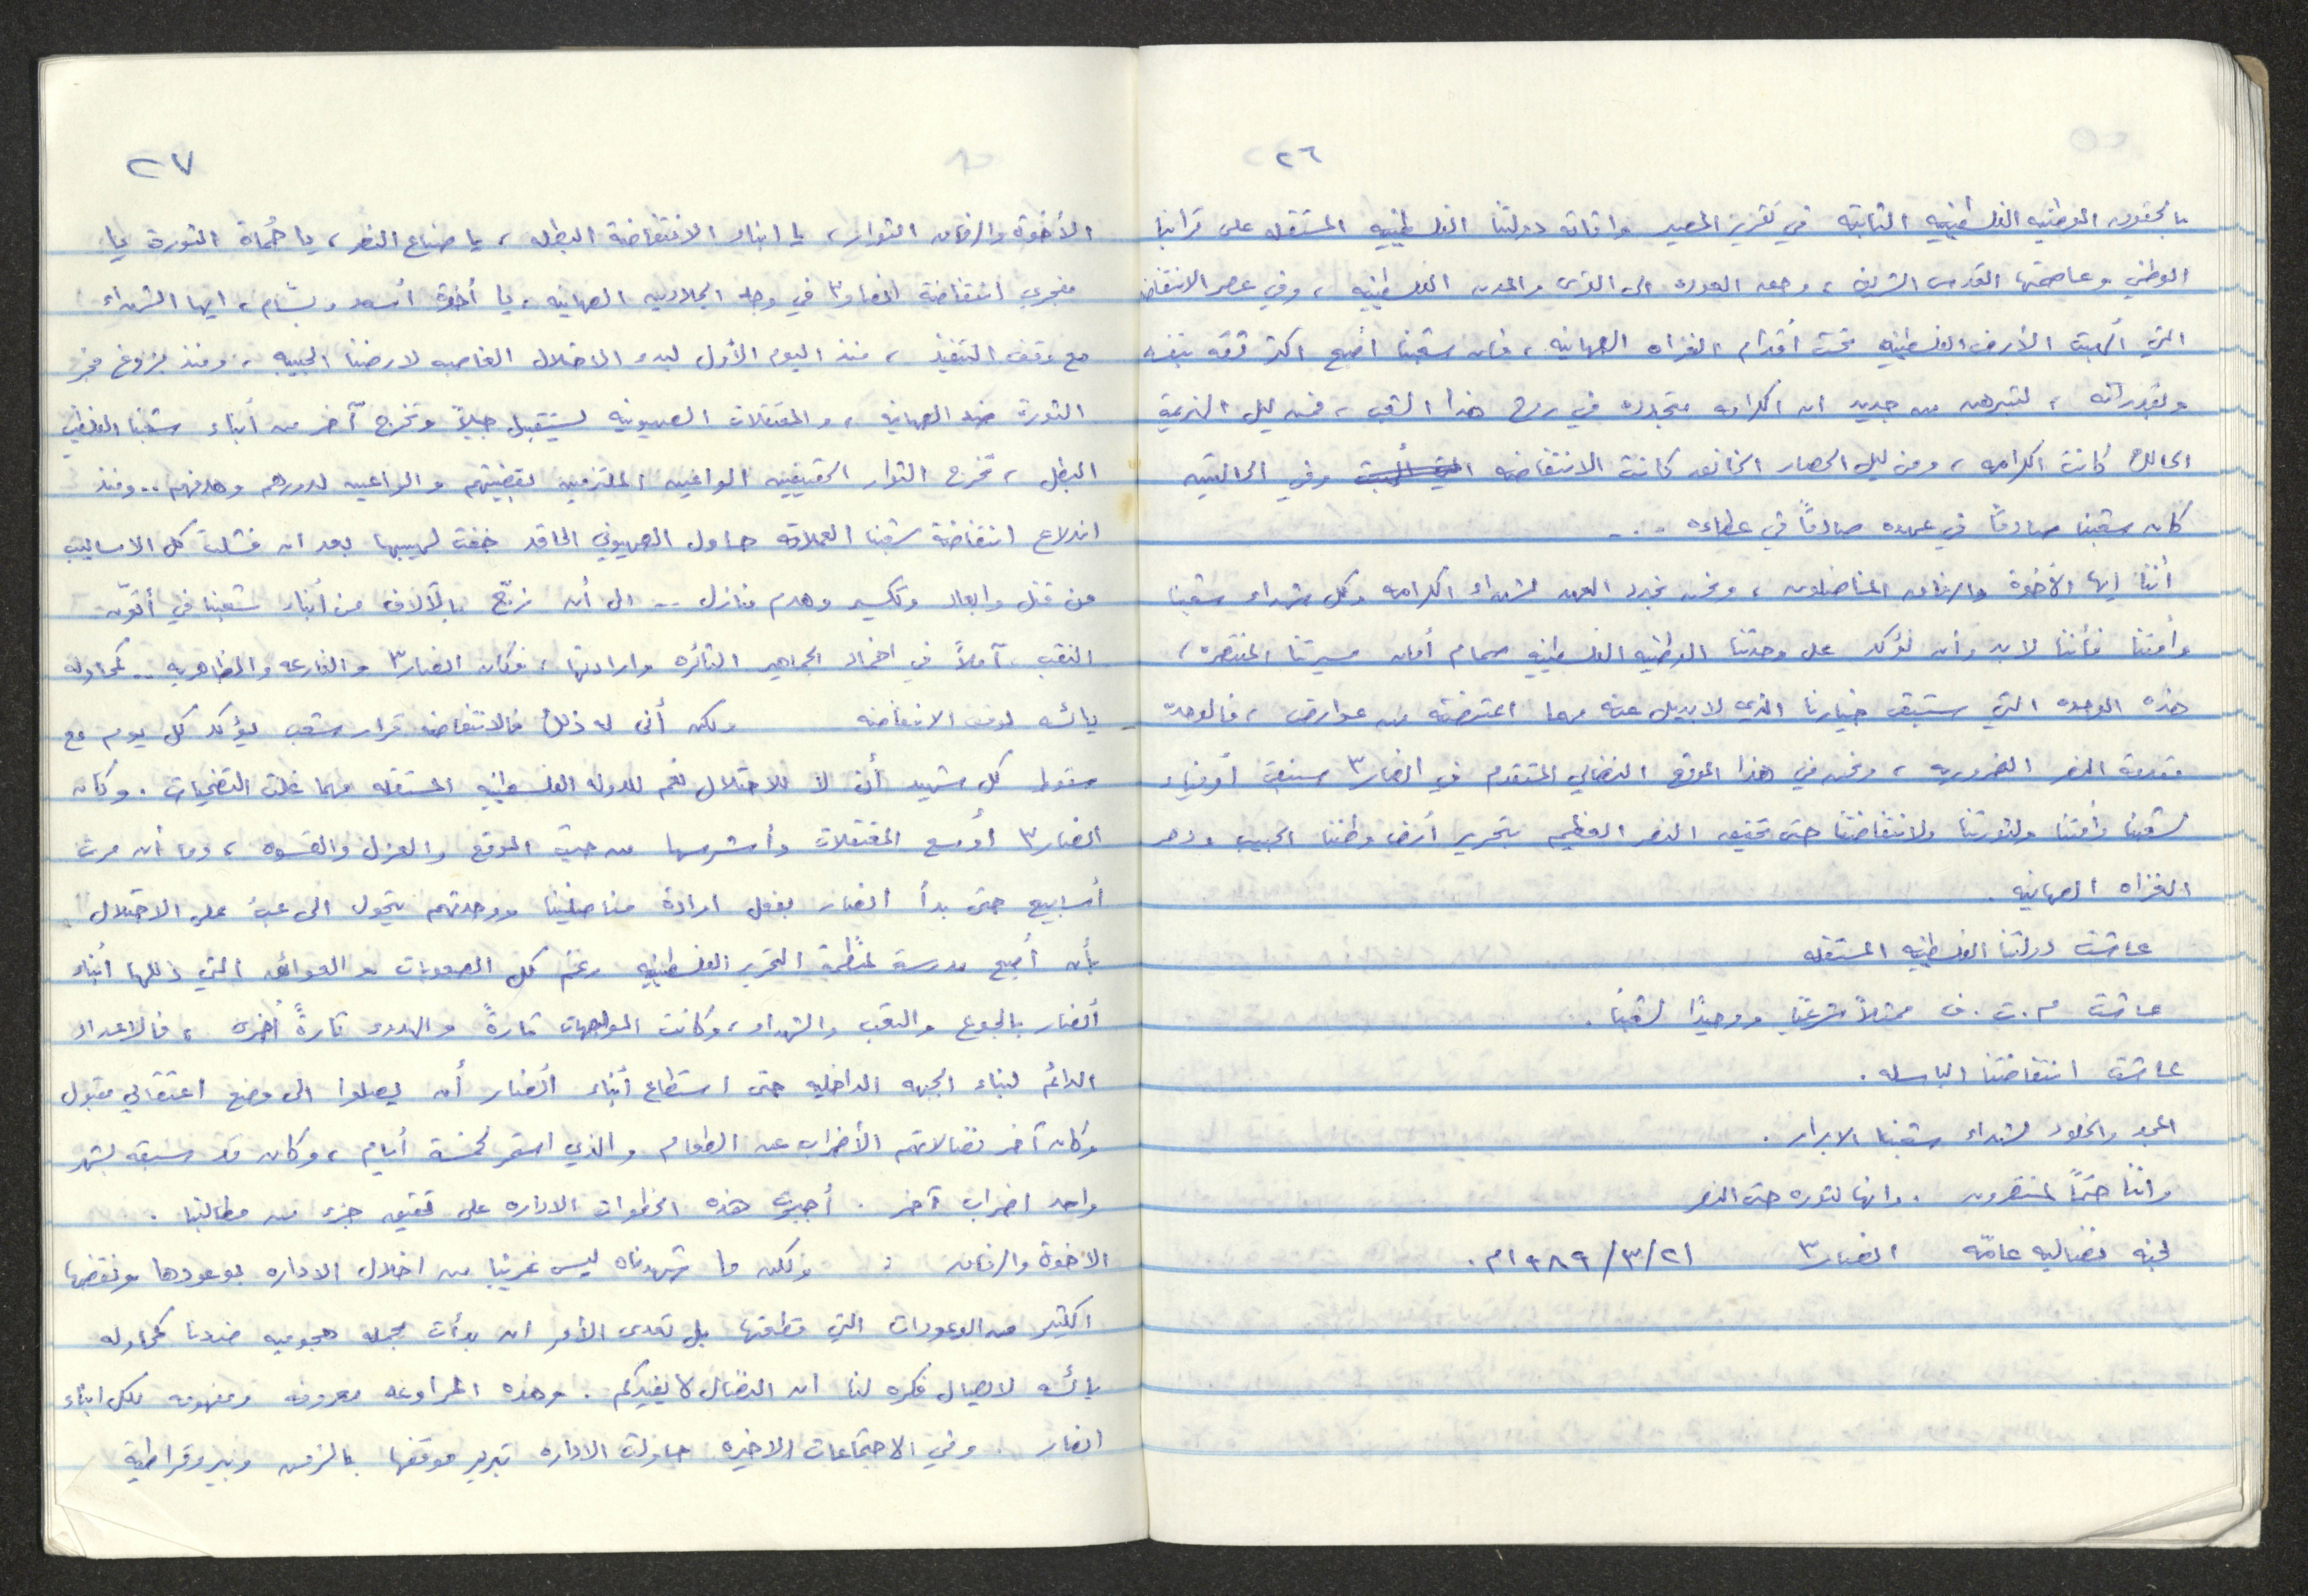 ٢٦
بالحقوق الوطنيه الفلسطينيه الثابته في تقرير المصير واقامة دولتنا الفلسطينيه المستقله على ترابنا
الوطني وعاصمتها القدس الشريف ، وحق العوده الى القرى والمدن الفلسطينيه ، وفي عصر الانتفاضه
التي ألهبت الأرض الفلسطينيه تحت أقدام الغزاه الصهاينه ، فان شعبنا أصبح اكثر ثقه بنفسه
وبقدراته ، لتبرهن من جديد ان الكرامه متجدده في روح هذا الشعب ، فمن ليل الهزيمة
الحالك كانت الكرامه ، ومن ليل الحصار الخانق كانت الانتفاضه التي ألهبت وفي الحالتين
كان شعبنا صادقاً في عهده صادقاً في عطاءه ...
أننا ايها الأخوة والرفاق المناضلون ، ونحن نجدد العهد لشهداء الكرامه وكل شهداء شعبنا
وأمتنا فأننا لابد وأن نؤكد على وحدتنا الوطنيه الفلسطينيه صمام أمان مسيرتنا المنتصره ،
هذه الوحده التي ستبقى خيارنا الذي لا بديل عنه مهما اعترضته من عوارض ، فالوحده
مقدمة النصر الضروريه ، ونحن في هذا الموقع النضالي المتقدم في انصار٣ سنبقى أوفياء
لشعبنا وأمتنا ولثورتنا ولانتفاضتنا حتى تحقيق النصر العظيم بتحرير أرض وطننا الحبيب ودحر
الغزاه الصهاينه .
عاشت دولتنا الفلسطينيه المستقله
عاشت م.ت.ف ممثلاً شرعياً ووحيداً لشعبنا .
عاشت انتفاضتنا الباسله .
المجد والخلود لشهداء شعبنا الابرار .
واننا حتماً لمنتصرون . وانها لثوره حتى النصر
لجنه نضاليه عامّه انصار٣ ٢١/٣/١٩٨٩م .
٢٧
الأخوة والرفاق الثوار ، يا ابناء الانتفاضة البطله ، يا صناع النصر ، يا حُماة الثورة يا
مفجري انتفاضة انصار٣ في وجه الجلادين الصهاينه ، يا أخوة أسعد وبسّام ، ايها الشهداء
مع وقف التنفيذ ، منذ اليوم الأول لبدء الاحتلال الغاصبه لارضنا الحبيبه ، ومنذ بزوغ فجر
الثورة ضد الصهاينه ، والمعتقلات الصهيونيه تستقبل جيلاً وتخرج آخر من أبناء شعبنا الفلسطيني
البطل ، تخرج الثوار الحقيقيين الواعيين الملتزمين بقضيتهم والواعيين لدورهم وهدفهم .. ومنذ
اندلاع انتفاضة شعبنا العملاقه حاول الصهيوني الحاقد خفت لهيبها بعد ان فشلت كل الاساليب
من قتل وابعاد وتكسير وهدم منازل .. الى أن زجّ بالآلاف من أبناء شعبنا في أتون
النقب آملاً في اخماد الجماهير الثائره وارادتها ، فكان انصار٣ والفارعه والظاهريه .. كمحاوله
يائسه لوقف الانتفاضه ولكن أنى له ذلك فالانتفاضه قرار شعب يؤكد كل يوم مع
سقوط كل شهيد أن لا للاحتلال نعم للدوله الفلسطينيه المستقله مهما غلت التضحيات . وكان
انصار٣ أوسع المعتقلات وأشرسها من حيث الموقع والعزل والقسوه ، وما أن مرت
أسابيع حتى بدأ انصار بفعل ارادة مناضلينا ووحدتهم يتحول الى عبئ على الاحتلال
بأن أصبح مدرسة لمنظمة التحرير الفلسطينيه رغم كل الصعوبات والعوائق التي ذللها أبناء
أنصار بالجوع والتعب والشهداء ، وكانت المواجهات تارةً والهدوء تارةً أخرى ، فالاعداد
الدائم لبناء الجبهه الداخليه حتى استطاع أبناء أنصار أن يصلوا الى وضع اعتقالي مقبول
وكان آخر نضالاتهم الأضراب عن الطعام والذي استمر لخمسة أيام ، وكان قد سبقه بشهر
واحد اضراب آخر . أجبرت هذه الخطوات الاداره على تحقيق جزء من مطالبنا .
الاخوة والرفاق : ولكن ما شهدناه ليس غريباً من اخلال الاداره بوعودها ونقضها
الكثير من الوعودات التي قطعتها بل تعدى الأمر ان بدأت بحمله هجوميه ضدنا كمحاوله
يائسه لايصال فكره لنا ان النضال لا يفيدكم . وهذه المراوغه معروفه ومفهومه لكل ابناء
انصار . وفي الاجتماعات الاخيره حاولت الاداره تبرير موقفها بالزمن وبيروقراطية